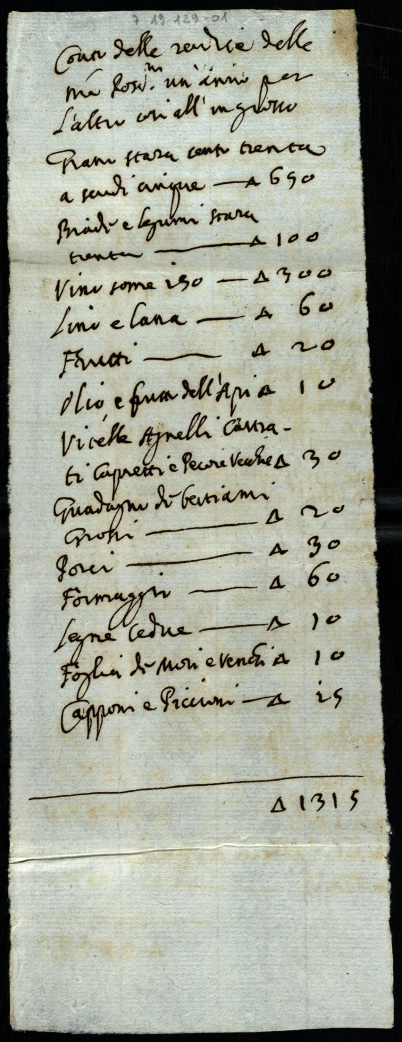 7 19 129-01
Conto delle rendite delle
mie Possni un'anno per
l'altro così all'ingrosso
Grano stara cento trenta
a scudi cinque — ∆ 650
Biade e legumi stara
trenta — ∆ 100
Vino some 150 — ∆ 300
Lino e lana — ∆ 60
Frutti — ∆ 20
Olio, e frutto dell'Api ∆ 10
Vitelle Agnelli Castra-
ti Capretti e Pecore Vecchie ∆ 30
Guadagno di bestiami
Grossi — ∆ 20
Porci — ∆ 30
Formaggii — ∆ 60
Legne Cedue — ∆ 10
Foglia di Mori e Venchi ∆ 10
Capponi e Piccioni — ∆ 15
∆ 1315